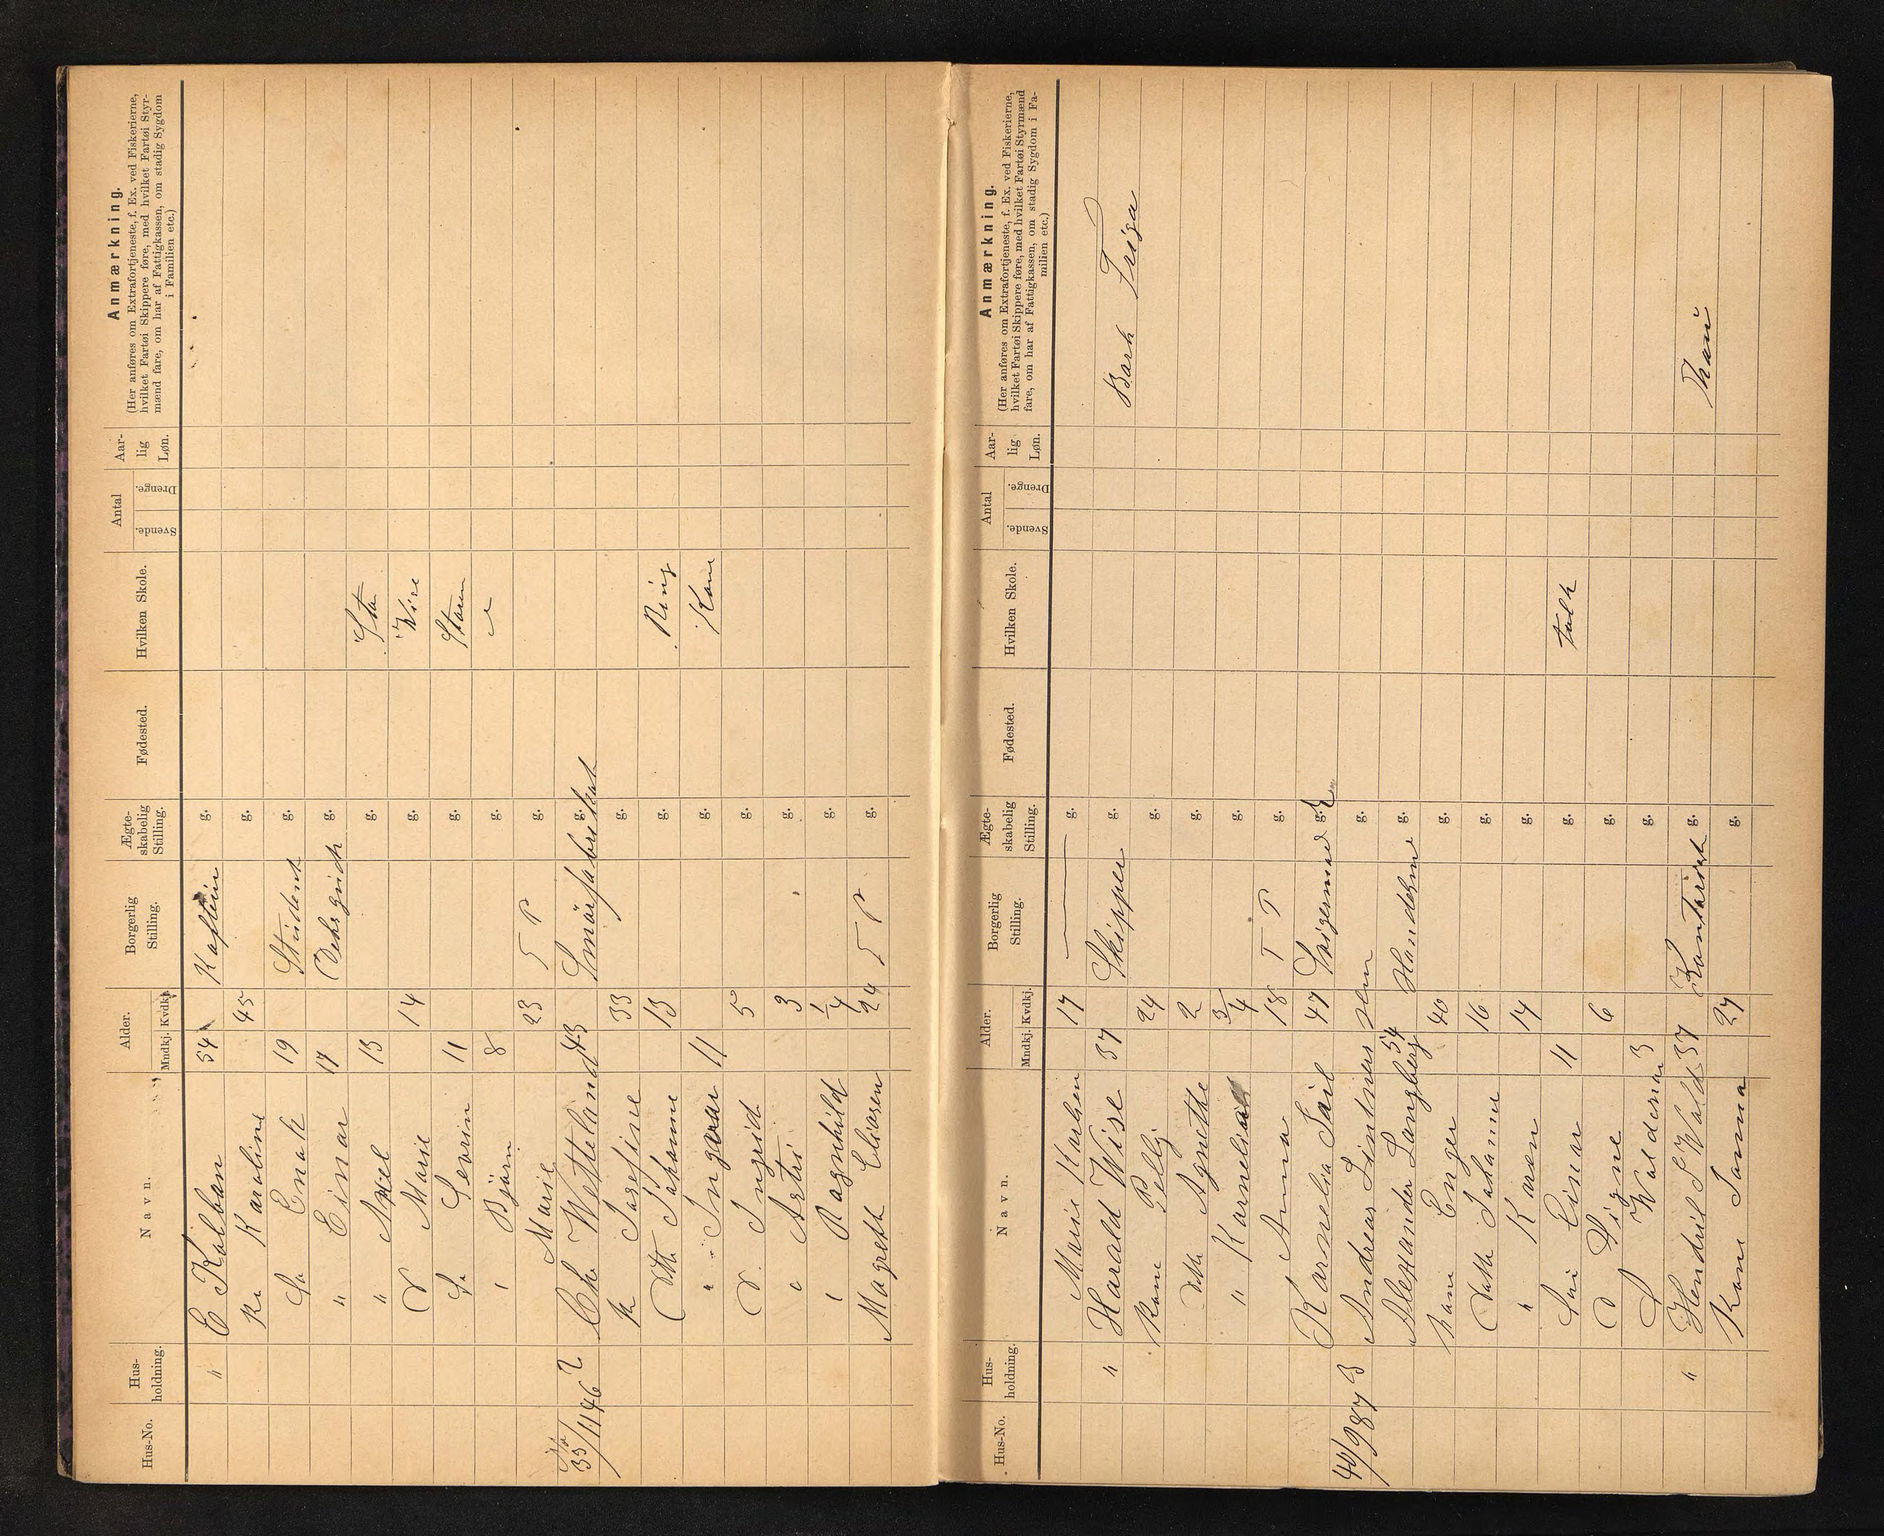 Hus-No. Hus-holdning. Navn. Alder. Mndkj. Kvdkj. Borgerlig Stilling. Ægte-skabelig Stilling. Fødested. Hvilken Skole. Antal Svende. Drenge. Aar-lig Løn. Anmærkning.
(Her anføres om Extrafortjeneste, f. Ex. ved Fiskerierne,
hvilket Fartøi Skippere føre, med hvilket Fartøi Styr-
mænd fare, om har af Fattigkassen, om stadig Sygdom
i Familien etc.)
" E Kolban 54 Kaftein g.
Ka Karoline 45 g.
Sø Enok 19 Student g.
" Einar 17 g.
" Axel 13 g. Sta
D Marie 14 g. Wise
Sø Sevrin 11 g. Staren
" Björn 8 g.
Marie 23 T P g.
No 33/1146 2 Chr Wetteland 43 Smörfabrikat g.
K Josefine 33 g.
Dtte Johanne 13 g. Ring
" Ingvar 11 g. Kone
D. Ingrid 5 g.
" Astri 3 g.
" Ragnhild 1/4 g.
Magreth Eliasen 24 T P g.
Hus-No. Hus-holdning. Navn. Alder. Mndkj. Kvdkj. Borgerlig Stilling. Ægte-skabelig Stilling. Fødested. Hvilken Skole. Antal Svende. Drenge. Aar-lig Løn. Anmærkning.
(Her anføres om Extrafortjeneste, f. Ex. ved Fiskerierne,
hvilket Fartøi Skippere føre, med hvilket Fartøi Styrmænd
fare, om har af Fattigkassen, om stadig Sygdom i Fa-
milien etc.)
Marie Karlsen 17 g.
" Harald Wise 37 Skipper g. Bark Friga
Kone Pelly 24 g.
Dtte Agnethe 2 g.
" Karnelia 3/4 g.
Anna 18 T P g.
Karnelia Sæil 47 Svigermod g.
40/987 3 Andreas Lintners sen g.
Alexander Langberg 54 Handelsm g.
Kone Enger 40 g.
Datte Johanne 16 g.
" Karen 14 g.
Søn Einar 11 g. folk
D Signe 6 g.
S Waldemar 3 g.
" Hendrik S Wold 37 Kontorist g. Thau
Kone Janna 27 g.